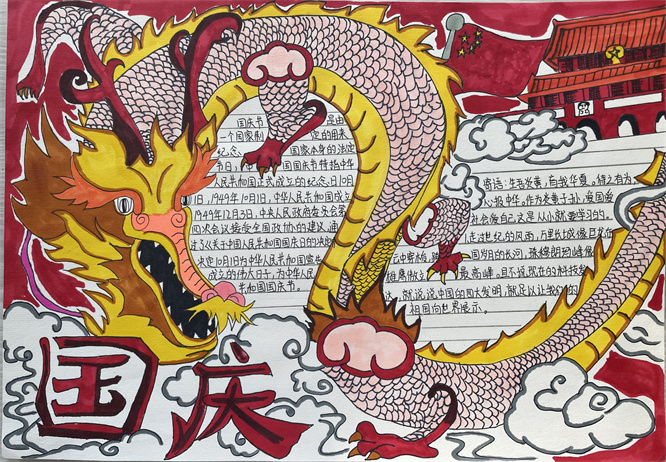 国庆节 是由
一个国家制 定的用来
纪念 国家本身的法定
节日 国国庆节特指中华
人民共和国正式成立的纪念日10月
1日,1949年10月1日,中华人民共和国成立
1949年12月3日,中央人民政府委员会第
四次会议接受全国政协的建议,通
过了《关于中国人民共和国国庆日的决议
决定10月1日为中华人民共和国宣告
成立的伟大日子,为中华人民
共和国国庆节。
寄语:生于炎黄,自我华夏,
以报中华,作为炎黄子孙,爱国爱
社会爱自己这是从小就要学习的,
走过世纪的风雨,万里长城像巨龙在
国岁月的长河,珠穆朗玛峰像
雄鹰傲立 最高峰。且不说现在的科技发
达,就说说中国的四大发明,就足以让我们的
祖国向世界展示。
国庆